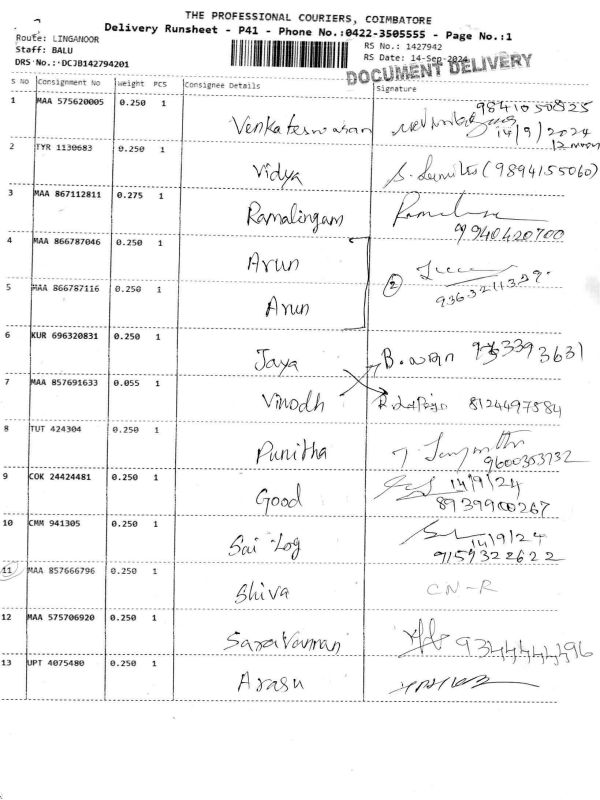 THE PROFESSIONAL COURIERS, COIMBATORE
Delivery Runsheet - P41 - Phone No.:0422-3505555 - Page No.:1
Route: LINGANOOR
Staff: BALU
DRS No.: DCJB142794201
RS No.: 1427942
RS Date: 14-Sep-2024
DOCUMENT DELIVERY
S No Consignment No Weight PCS Consignee Details Signature
1 MAA 575620005 0.250 1 Venkateswaran 9841050825
14/9/2024
12 noon
2 TYR 1130683 0.250 1 Vidya (9894155060)
3 MAA 867112811 0.275 1 Ramalingam
9940420700
4 MAA 866787046 0.250 1 Arun
2
5 MAA 866787116 0.250 1 Arun
6 KUR 696320831 0.250 1 Jaya
7 MAA 857691633 0.055 1 Vinodh 8124497584
8 TUT 424304 0.250 1 Punitha
9600353732
9 COK 24424481 0.250 1 Good 14/9/24
8939900267
10 CMM 941305 0.250 1 Sai Log 14/9/24
9159322622
11 MAA 857666796 0.250 1 Shiva CN-R
12 MAA 575706920 0.250 1 Saravanan 9344444496
13 UPT 4075480 0.250 1 Arasu